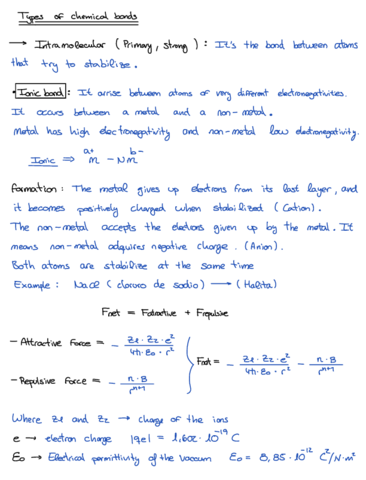 Types of chemical bonds
→ Intramolecular (Primary, strong): It's the bond between atoms
that try to stabilize.
• Ionic bond: It arrise between atoms of very different electronegativities.
It occurs between a metal and a non-metal.
Metal has high electronegativity and non-metal low electronegativity.
Ionic ⇒ M^a+ - NM^b-
Formation: The metal gives up electrons from its last layer, and
it becomes positively charged when stabilized (Cation).
The non-metal accepts the electrons given up by the metal. It
means non-metal adquires negative charge. (Anion).
Both atoms are stabilize at the same time
Example: NaCl (cloruro de sodio) → (Halita)
Fnet = Fatractive + Frepulsive
- Attractive Force = - Z1 · Z2 · e² / 4π · E0 · r²
Fnet = - Z1 · Z2 · e² / 4π · E0 · r² - n · B / r^n+1
- Repulsive Force = - n · B / r^n+1
Where Z1 and Z2 → charge of the ions
e → electron charge |qe| = 1,602 · 10^-19 C
E0 → Electrical permittivity of the vaccum E0 = 8,85 · 10^-12 C²/N·m²